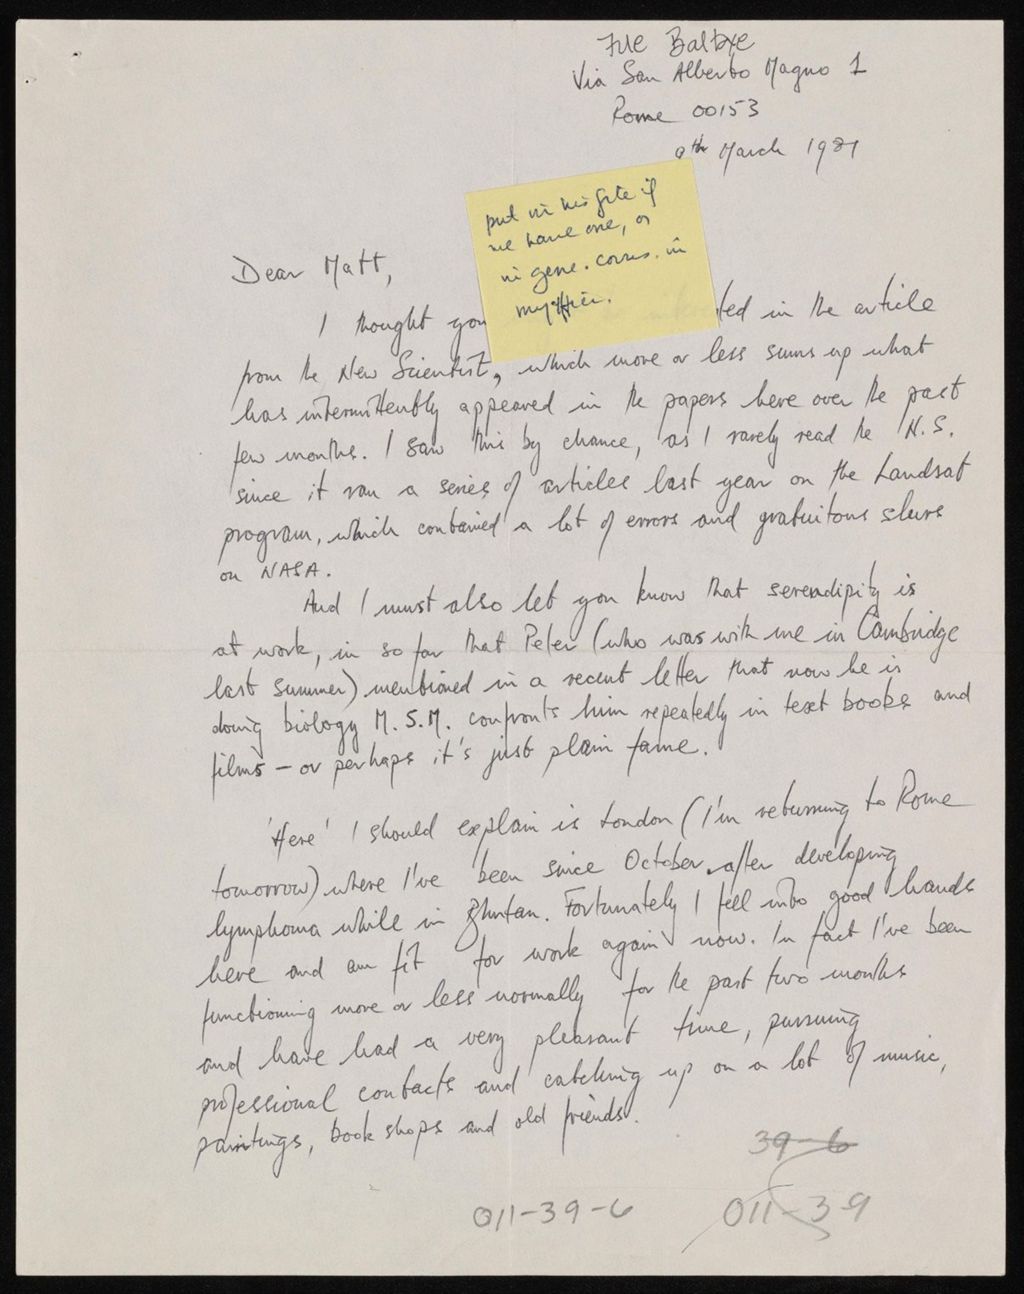 Via San Alberto Magno 1
Rome 00153
9th March 1981
put in his file if
we have one, or
in gene. corres. in
my
Dear Matt,
I thought you ted in the article
from the New Scientist, which more or less sums up what
has intermittently appeared in the papers here over the past
few months. I saw this by chance, as I rarely read the N.S.
since it ran a series of articles last year on the Landsat
program, which contained a lot of errors and gratuitous slurs
on NASA.
And I must also let you know that serendipity is
at work, in so far that Peter (who was with me in Cambridge
last summer) mentioned in a recent letter that now he is
doing biology M.S.M. confronts him repeatedly in text books and
films – or perhaps it's just plain fame.
'Here' I should explain is London (I'm returning to Rome
tomorrow) where I've been since October, after developing
lymphoma while in Bhutan. Fortunately I fell into good hands
here and am fit for work again now. In fact I've been
functioning more or less normally for the past two months
and have had a very pleasant time, pursuing
professional contacts and catching up on a lot of music,
paintings, book shops and old friends.
39-6
011-39-6
011-39